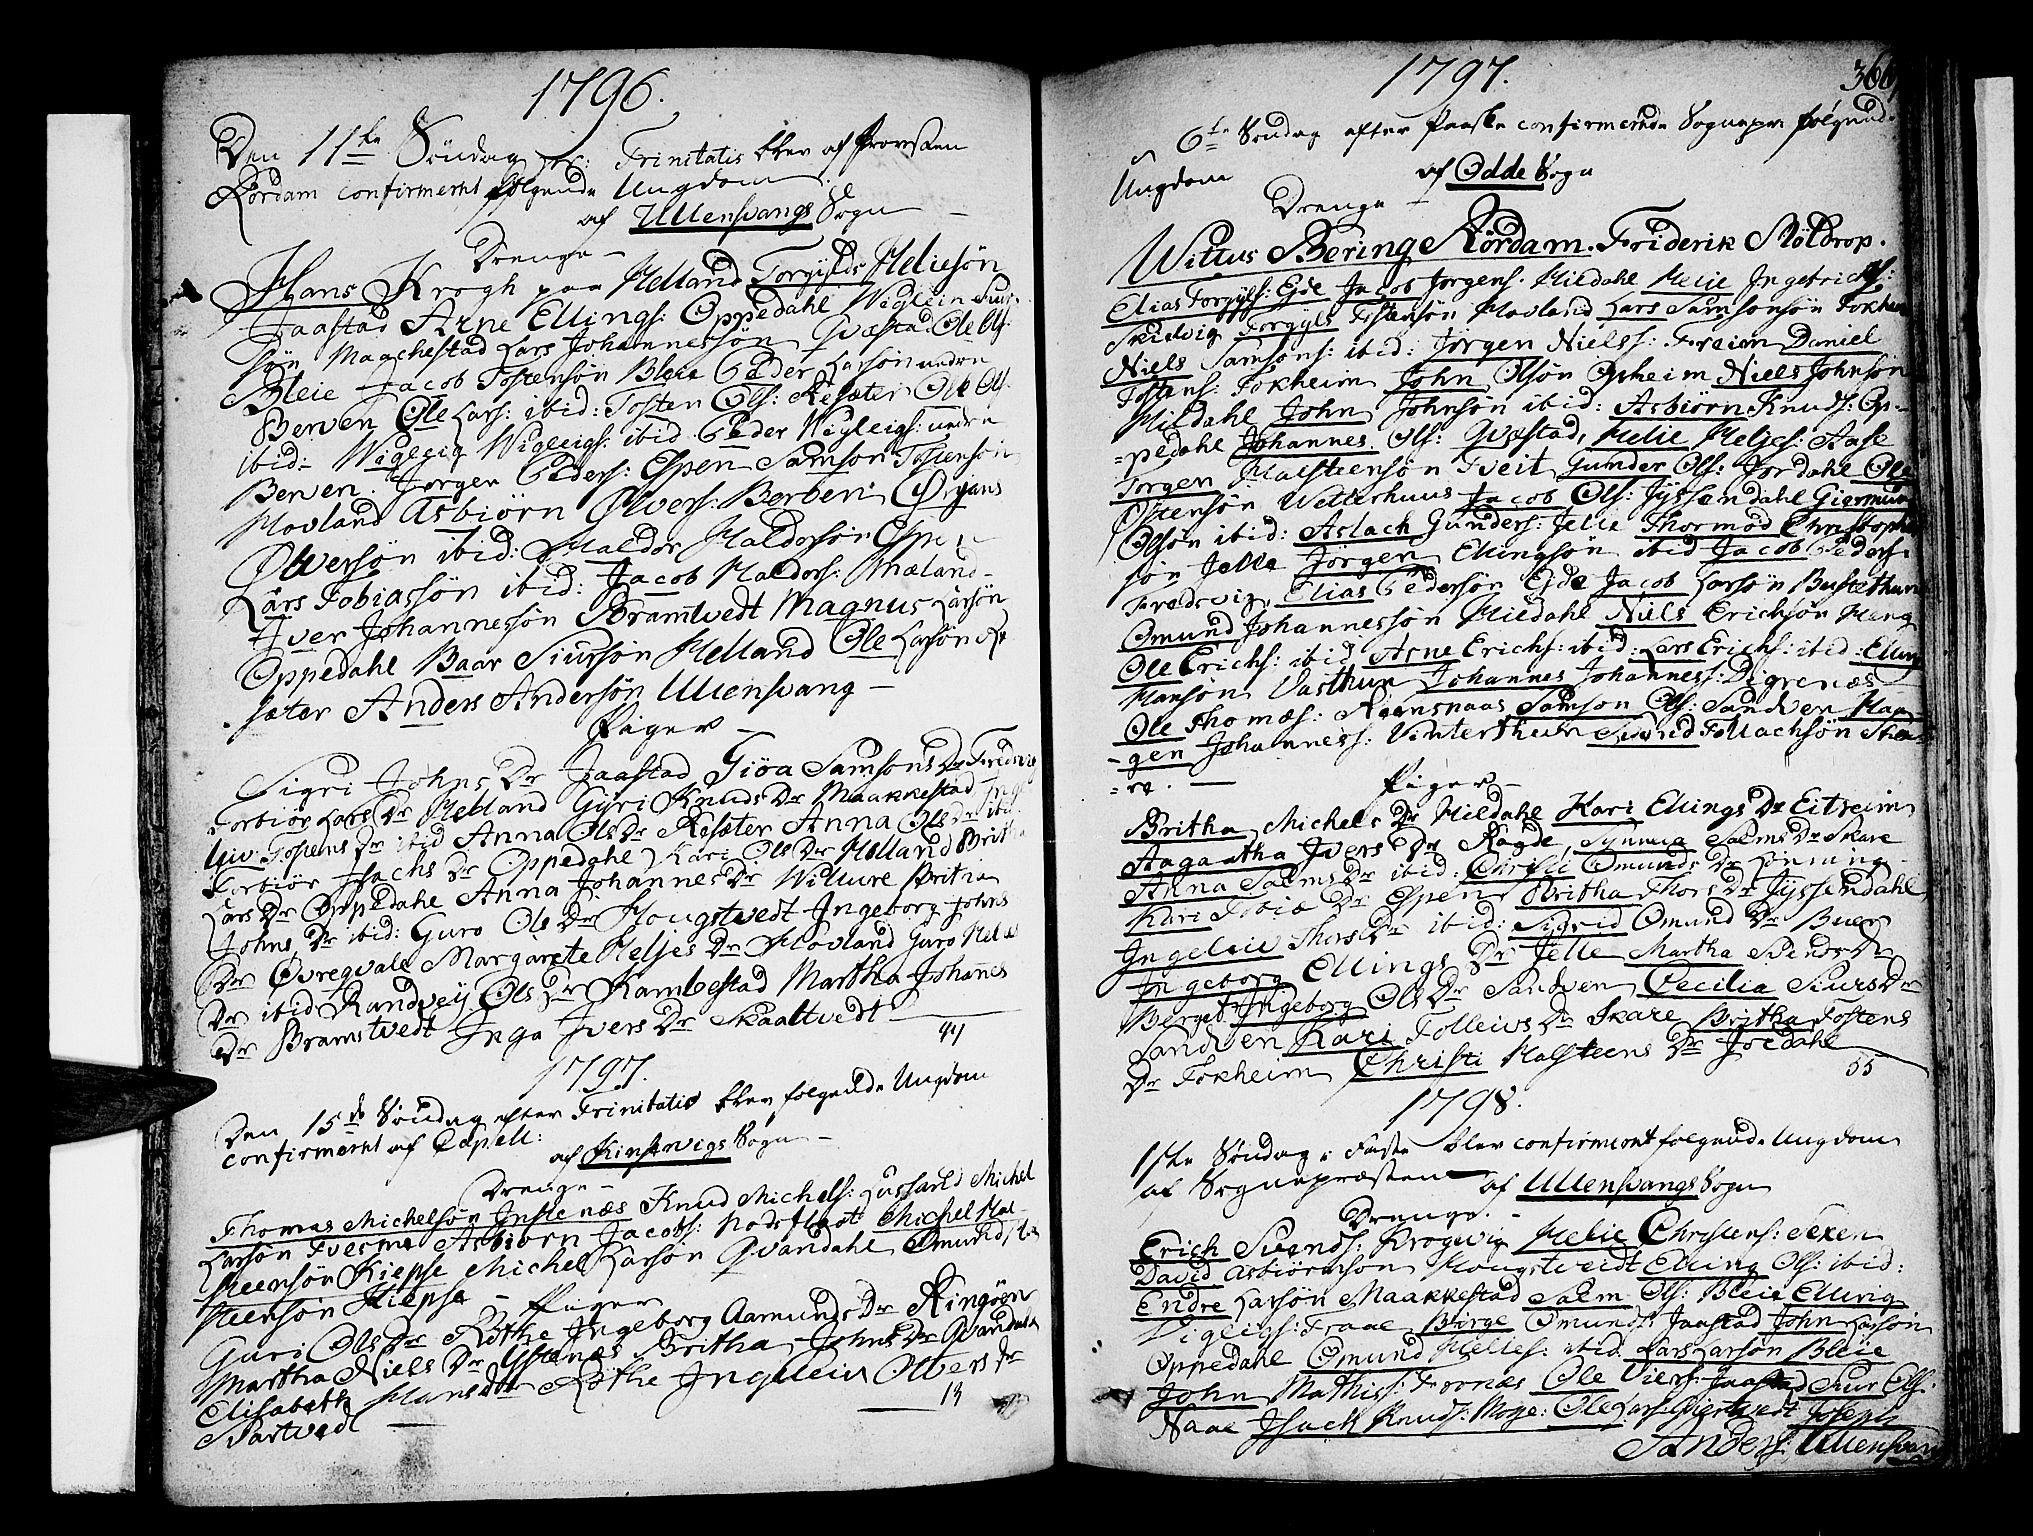 1796.
Den 11te Söndag p: Trinitatis blev af Provsten
Rördam confirmeret følgende Ungdom
af Ullensvangs Sogn
Drenge
Hans Krogh paa Helland Torgyls Heliesön
Jaastad Arne Ellings: Oppedahl Wiglein Siur-
sön Maachestad Lars Johannessön Qvæstad Ole Ols:
Bleie Jacob Tostensön Bleie Peder Larsön nedre
Berven Ole Lars: ibid: Tosten Ols: Resæter Ole Ols:
ibid: Wigleig Wigleigs: ibid Peder Wigleigs: nedre
Berven. Jørgen Peders: Espen Samson Tostensön
Hovland Asbiörn Ølvers: Berven Ørjans
Ølversön ibid: Haldor Haldorsön Espen
Lars Tobiassön ibid: Jacob Haldors: Mæland
Iver Johannessön Bramtvedt Magnus Larsön
Oppedahl Baar Siursön Helland Ole Larsön Re-
sæter Anders Andersön Ullensvang
Piger
Sigri Johns Dr Jaastad Giöa Samsons Dr Fredsvig
Torbiör Lars Dr Helland Gyri Knuds Dr Maakkestad Inge
Tostens Dr ibid Anna Ols Dr Resæter Anna Ols Dr ibid
Torbiör Isachs Dr Oppedahl Kari Ols Dr Helland Britha
Lars Dr Oppedahl Anna Johannes Dr Willure Britha
Johns Dr ibid: Guro Ols Dr Hougstvedt Ingeborg Johns
Dr Øvregvale Margarete Heljes Dr Hovland Guro Heljes
Dr ibid Randvey Ols Dr Kambestad Martha Johannes
Dr Bramstvedt Inga Ivers Dr Skaaltvedt
44
1797.
Den 15de Söndag efter Trinitatis blev følgende Ungdom
confirmeret af Capell:
af Kinservigs Sogn
Drenge
Thomas Michelsön Instenæs Knud Michels: Lussand Michel
Larsön Tvesme Asbiorn Jacobs: Hodsflaat Michel Hal-
steensön Kiepse Michel Larsön Qvandahl Omund
steensön Kiepse
Piger
Guri Ols Dr Röthe Ingeborg Aamunds Dr Ringöen
Martha Niels Dr Ystenæs Britha Johns Dr Qvandahl
Elisabeth Hans Dr Röthe Ingeleiv Olvers Dr
Svartvedt
13
1797.
366
6te Söndag efter Paaske confirmerede Sognepr følgende
Ungdom
af Odde Sogn
Drenge
Witus Bering Rördam. Friderik Möldrop.
Elias Torgyls: Eyde Jacob Jørgens. Hildahl Helie Ingebrichs:
Skidsvig Torgyls Tostensön Hovland Lars Samsonsön Tokheim
Niels Samsons: ibid: Jörgen Niels: Freim Daniel
Tostens: Tokheim John Olsön Opheim Niels Johnsön
Hildahl John Johnsön ibid: Asbiörn Knuds: Op-
pedahl Johannes Ols: Qvæstad, Helie Heljes: Aase
Torgen Halsteensön Tveit Gunder Ols: Jordahl Ole
Ostensön Wetterhuus Jacob Ols: Jyssendahl Giermund
Olsön ibid: Aslach Gunders: Jelle Thormod Christopher-
sön Jelle Jörgen Ellingsön ibid Jacob Peders:
Fredsvig, Elias Pedersön Eyde Jacob Larsön Bustethun
Omund Johannessön Hildahl Niels Ericksön Heng
Ole Erichs: ibid Arne Erichs: ibid: Lars Erichs: ibid: Elling
Hansön Vasthun Johannes Johanness: Digrenæs
Ole Thomæs: Reensnaas Samson Ols: Sandven Haa-
gen Johanness: Vinterthun Siurd Follachsön
re.
Piger
Britha Michels Dr Hildahl Kari Ellings Dr Eitreim
Aagaatha Ivers Dr Ragde, Synneva Salms Dr Skare
Anna Salms Dr ibid: Christi Omunds Dr Lönning
Kari Tobiæ Dr Espen Britha Thors Dr Jyssendahl
Ingeleiv Thors Dr ibid: Sigrid Omund Dr Buer
Ingeborg Ellings Dr Jelle Martha Svends Dr
Berget Ingeborg Ols Dr Sandven Cecilia Siurs Dr
Sandven Kari Folleivs Dr Skare Britha Tostens
Dr Tokheim Christi Halsteens Dr Joedahl
55
1798.
1ste Söndag i Faste blev confirmeret følgende Ungdom
af Sognepræsten af Ullensvangs Sogn
Drenge.
Erich Svends: Krogevig Helie Chrystens: Sexen
David Asbiörnsön Hougstveidt Elling Ols: ibid:
Endre Larsön Maakkestad Salm Ols: Bleie Elling
Vigleigs: Fraae Börge Omunds: Jaastad John Larsön
Oppedahl Omund Helies: ibid Lars Larsön Bleie
John Mathis: Frönæs Ole Viers: Jaastad Siur Ols:
Naae Isach Knuds: Moge: Ole Lars: Joseph
Anders: Ullensvang